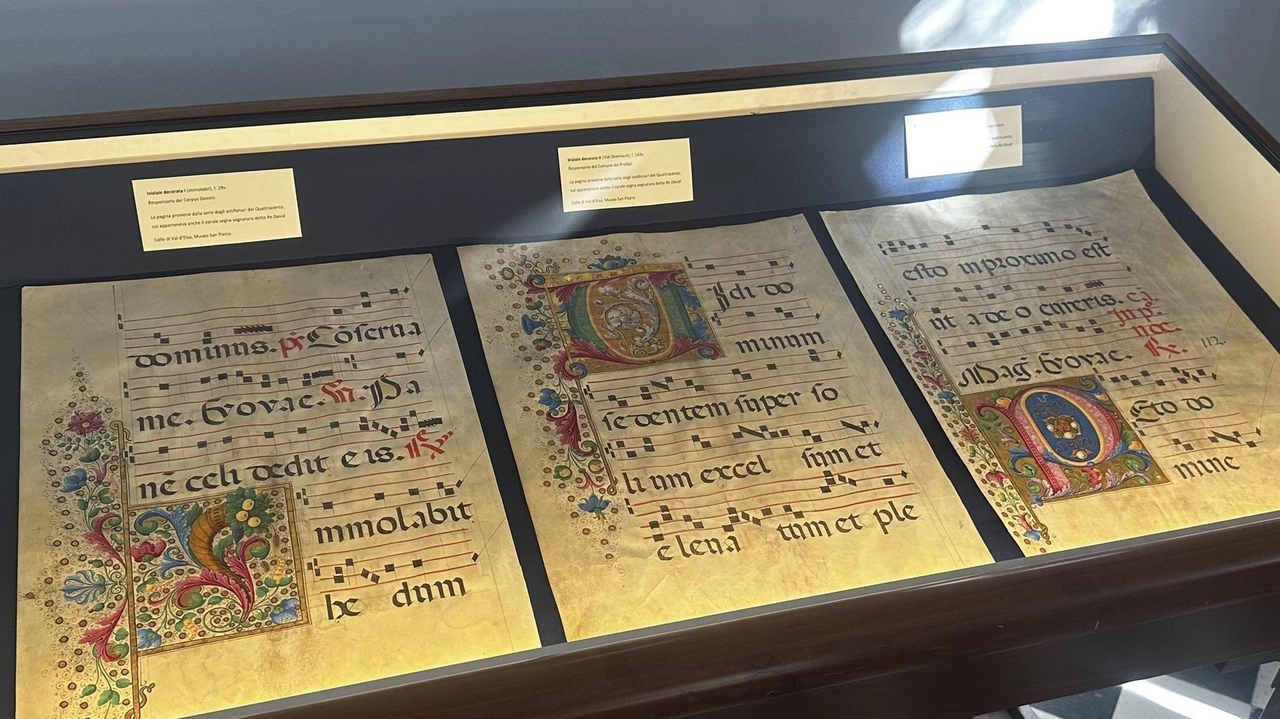 Iniziale decorata I (Immolabit), f. 29v
Responsorio del Corpus Domini
La pagina proviene dalla serie degli antifonari del Quattrocento,
cui apparteneva anche il corale segna segnatura detto Re David
Colle di Val d'Elsa, Museo San Pietro
Iniziale decorata V (Vidi Dominum), f. 143v
Responsorio del Comune dei Profeti
La pagina proviene dalla serie degli antifonari del Quattrocento,
cui apparteneva anche il corale segna segnatura detto Re David
Colle di Val d'Elsa, Museo San Pietro
Re David
dominus. Coserua
me. Evovae. Pa
nē celi dedit eis.
I mmolabit
he dum
V Idi do
minum
sedentem super so
li um excel sum et
elena tum et ple
esto inproximo est
ut adeo emeris.
Mag. Evovae.
112.
P Eto do
mine